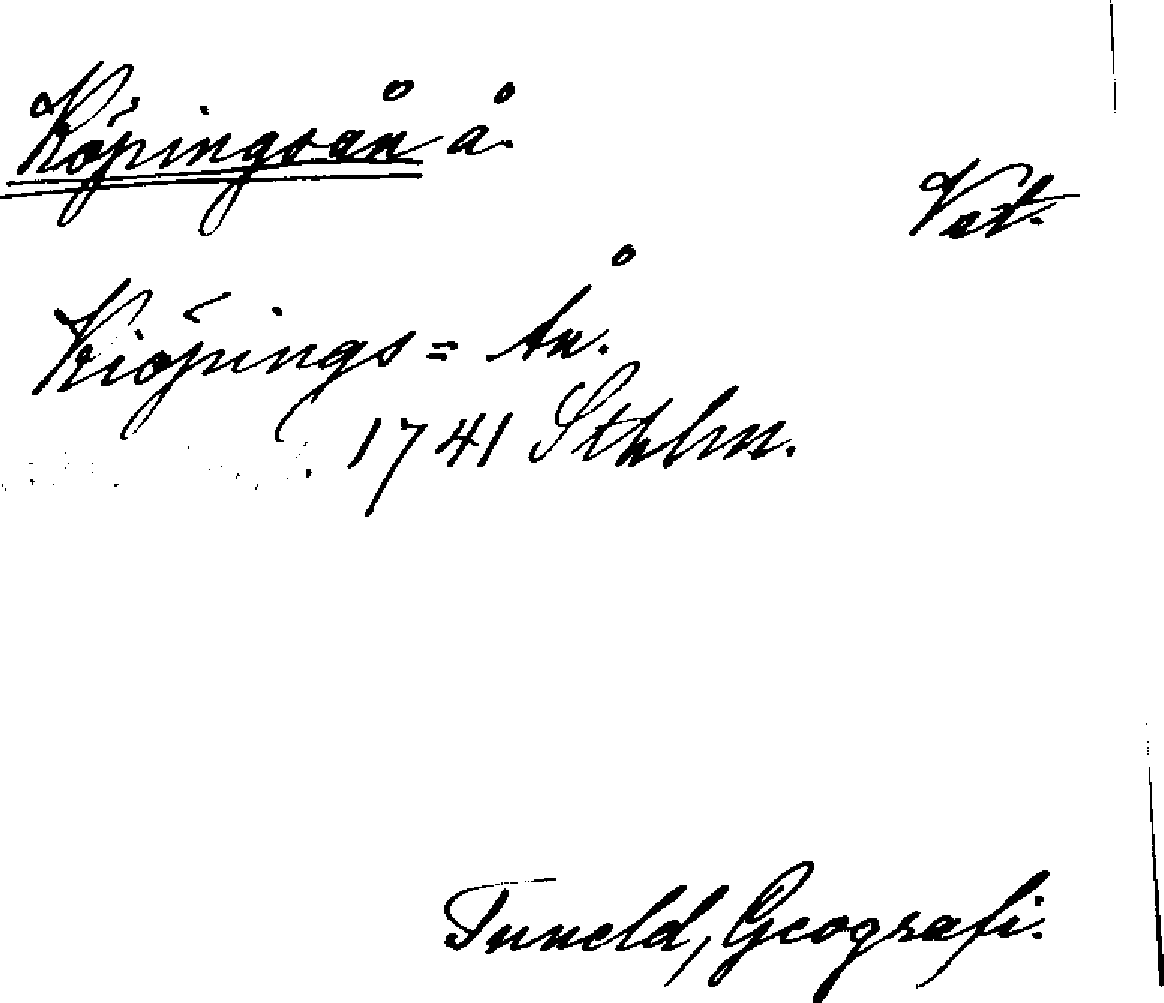 Köpingsån å.
Vst.
Kiöpings = Ån.
1741 Sthlm.
Tuneld, Geografi.